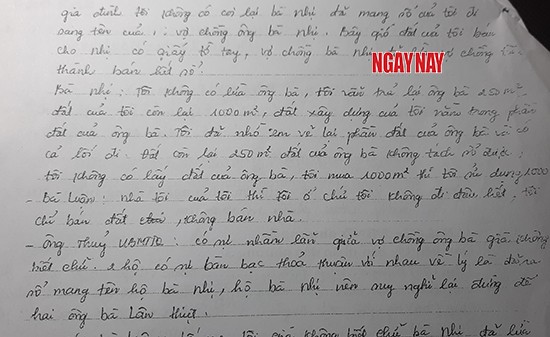 gia đình tôi không có coi lại bà nhị đã mang sổ của tôi đi
sang tên của : vợ chồng ông bà nhị. Bây giờ đất của tôi bán
cho nhị có giấy tờ tay, vợ chồng bà nhị vợ chồng
NGAY NAY
thành bán hết sổ.
Bà nhị : Tôi không có lừa ông bà, tôi vẫn trả lại ông bà 250 m²
đất của tôi còn lại 1000 m², đất xây dựng của tôi nằm trong phần
đất của ông bà. Tôi đã nhờ em vẽ lại phần đất của ông bà và có
cả lối đi. Đất còn lại 250 m² đất của ông bà không tách sổ được
tôi không có lấy đất của ông bà, tôi mua 1000 m² thì tôi sử dụng 1000
- Bà Luận : nhà tôi của tôi thì tôi ở chứ tôi không đi đâu hết, tôi
chỉ bán đất , không bán nhà.
- Ông Thuỷ UBMTTQ : có sự nhầm lẫn giữa vợ chồng ông bà già không
biết chữ. 2 hộ có sự bàn bạc thoả thuận với nhau về lý là đã ra
sổ mang tên hộ bà nhị, hộ bà nhị nên suy nghĩ lại đừng để
hai ông bà Lâm thiệt.
tôi già không biết chữ bà nhị đã lừa